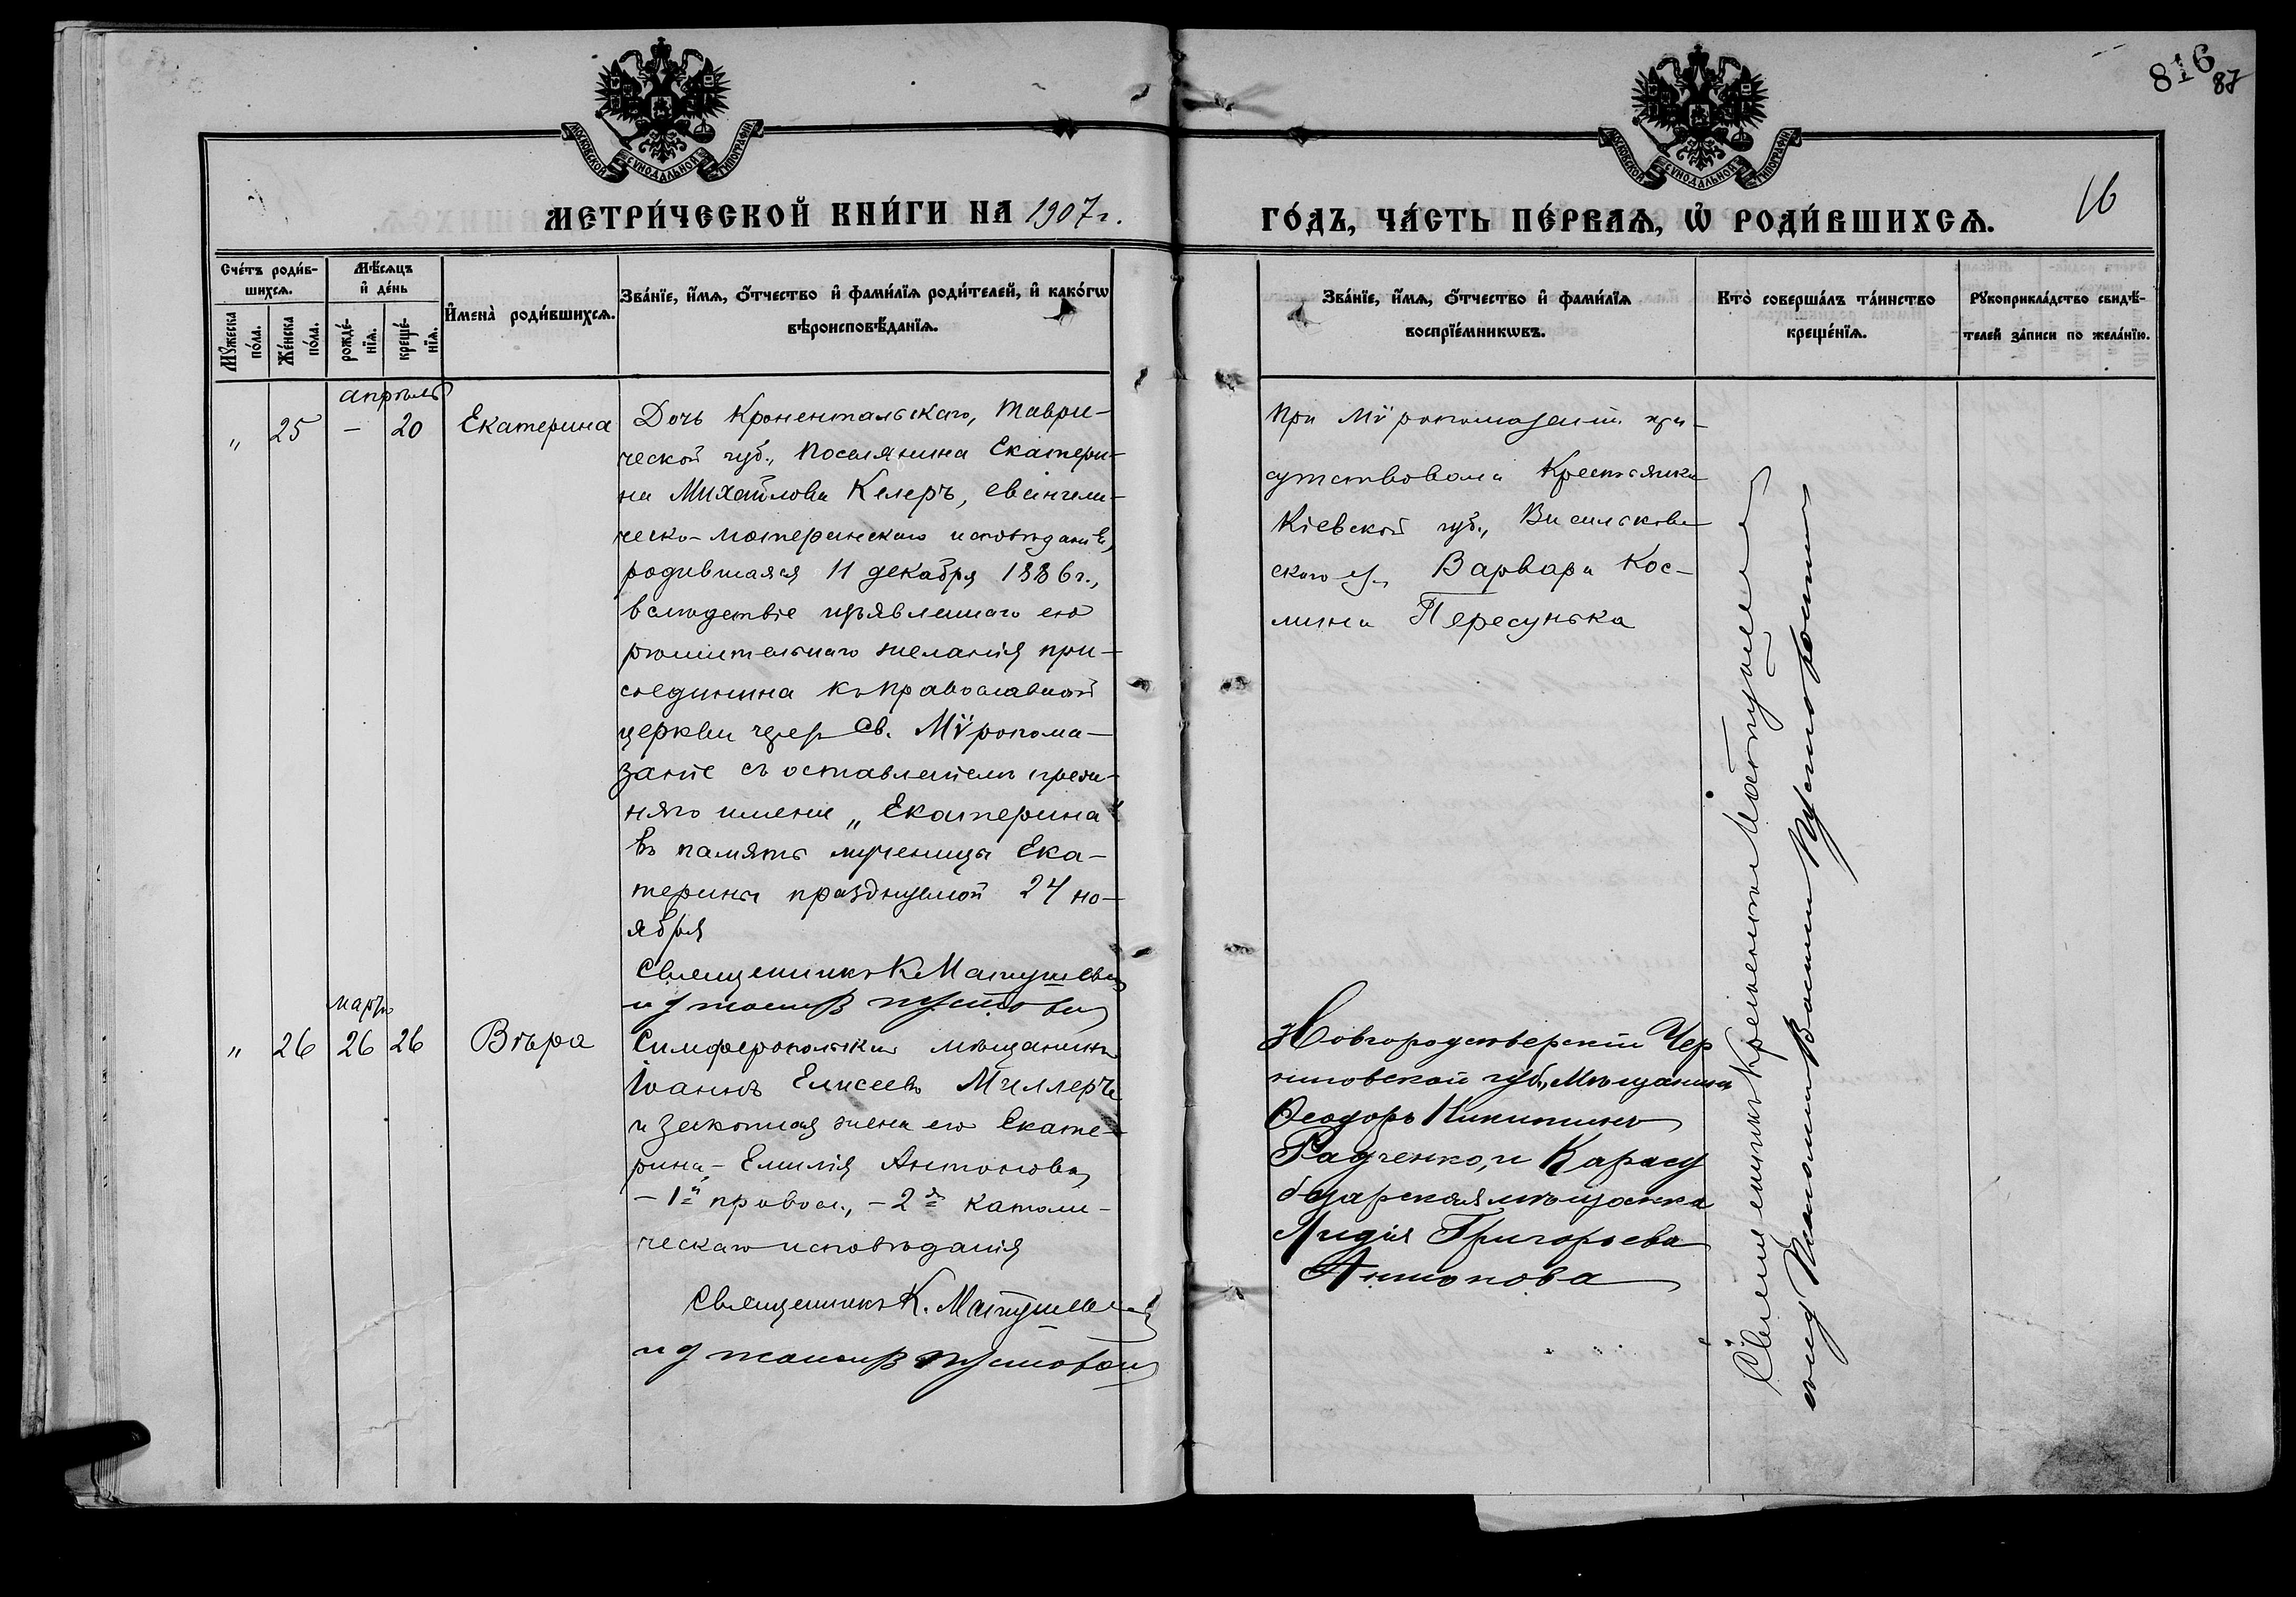 816
87
МОСКОВСКОЙ СѴНОДАЛЬНОЙ ТИПОГРАФІИ
МОСКОВСКОЙ СѴНОДАЛЬНОЙ ТИПОГРАФІИ
МЕТРИ́ЧЕСКОЙ КНИ́ГИ НА 1907 г.
ГО́ДЪ, ЧА́СТЬ ПЕ́РВАѦ, Ѡ҆ РОДИ́ВШИХСѦ.
16
Сче́тъ роди́в-
шихсѧ.
Мꙋ́жеска по́ла.
Же́нска по́ла.
Мѣ́сѧцъ
и҆ де́нь
рожде́-
нїѧ.
креще́-
нїѧ.
И҆мена̀ роди́вшихсѧ.
Зва́нїе, и҆́мѧ, ѻ҆́тчество и҆ фами́лїѧ роди́телей, и҆ како́гѡ
вѣроисповѣ́данїѧ.
Зва́нїе, и҆́мѧ, ѻ҆́тчество и҆ фами́лїѧ
воспрїе́мникѡвъ.
Кто̀ соверша́лъ та́инство
креще́нїѧ.
Рꙋкоприкла́дство свидѣ́-
телей за́писи по жела́нїю.
апрѣль
„ 25 — 20 Екатерина
Дочь Кроненталськаго, Таври-
ческой губ., Поселянина Екатери-
на Михайлова Келеръ, евангели-
ческо-лютеранскаго исповѣданія,
родившаяся 11 декабря 1886 г.,
вслѣдствіе изъявленнаго ею
рѣшительнаго желанія при-
соединена къ православной
церкви чрез Св. Мѵропома-
заніе съ оставленіемъ преж-
няго имени „Екатерина"
въ память мученицы Ека-
терины празднуемой 24 но-
ября
Священникъ К. Матушевич
При Мѵропомазаніи при-
сутствовала Крестьянка
Кіевской губ., Васильков-
скаго у. Варвара Кос-
мина Пересунька
мартъ
„ 26 26 26 Вѣра
Симферопольскій мѣщанинъ
Іоаннъ Елисеевъ Миллеръ
и законная жена его Екате-
рина-Емилія Антонова,
— 1й правосл., — 2я католи-
ческаго исповѣданія
Священникъ К. Матушевич
Новгородсѣверскій Чер
ниговской губ., Мѣщанинъ
Ѳеодоръ Никитинъ
Радченко, и Карасу
базарская мѣщанка
Лидія Григорьева
Антонова
Священникъ Матушевич
Псаломщ